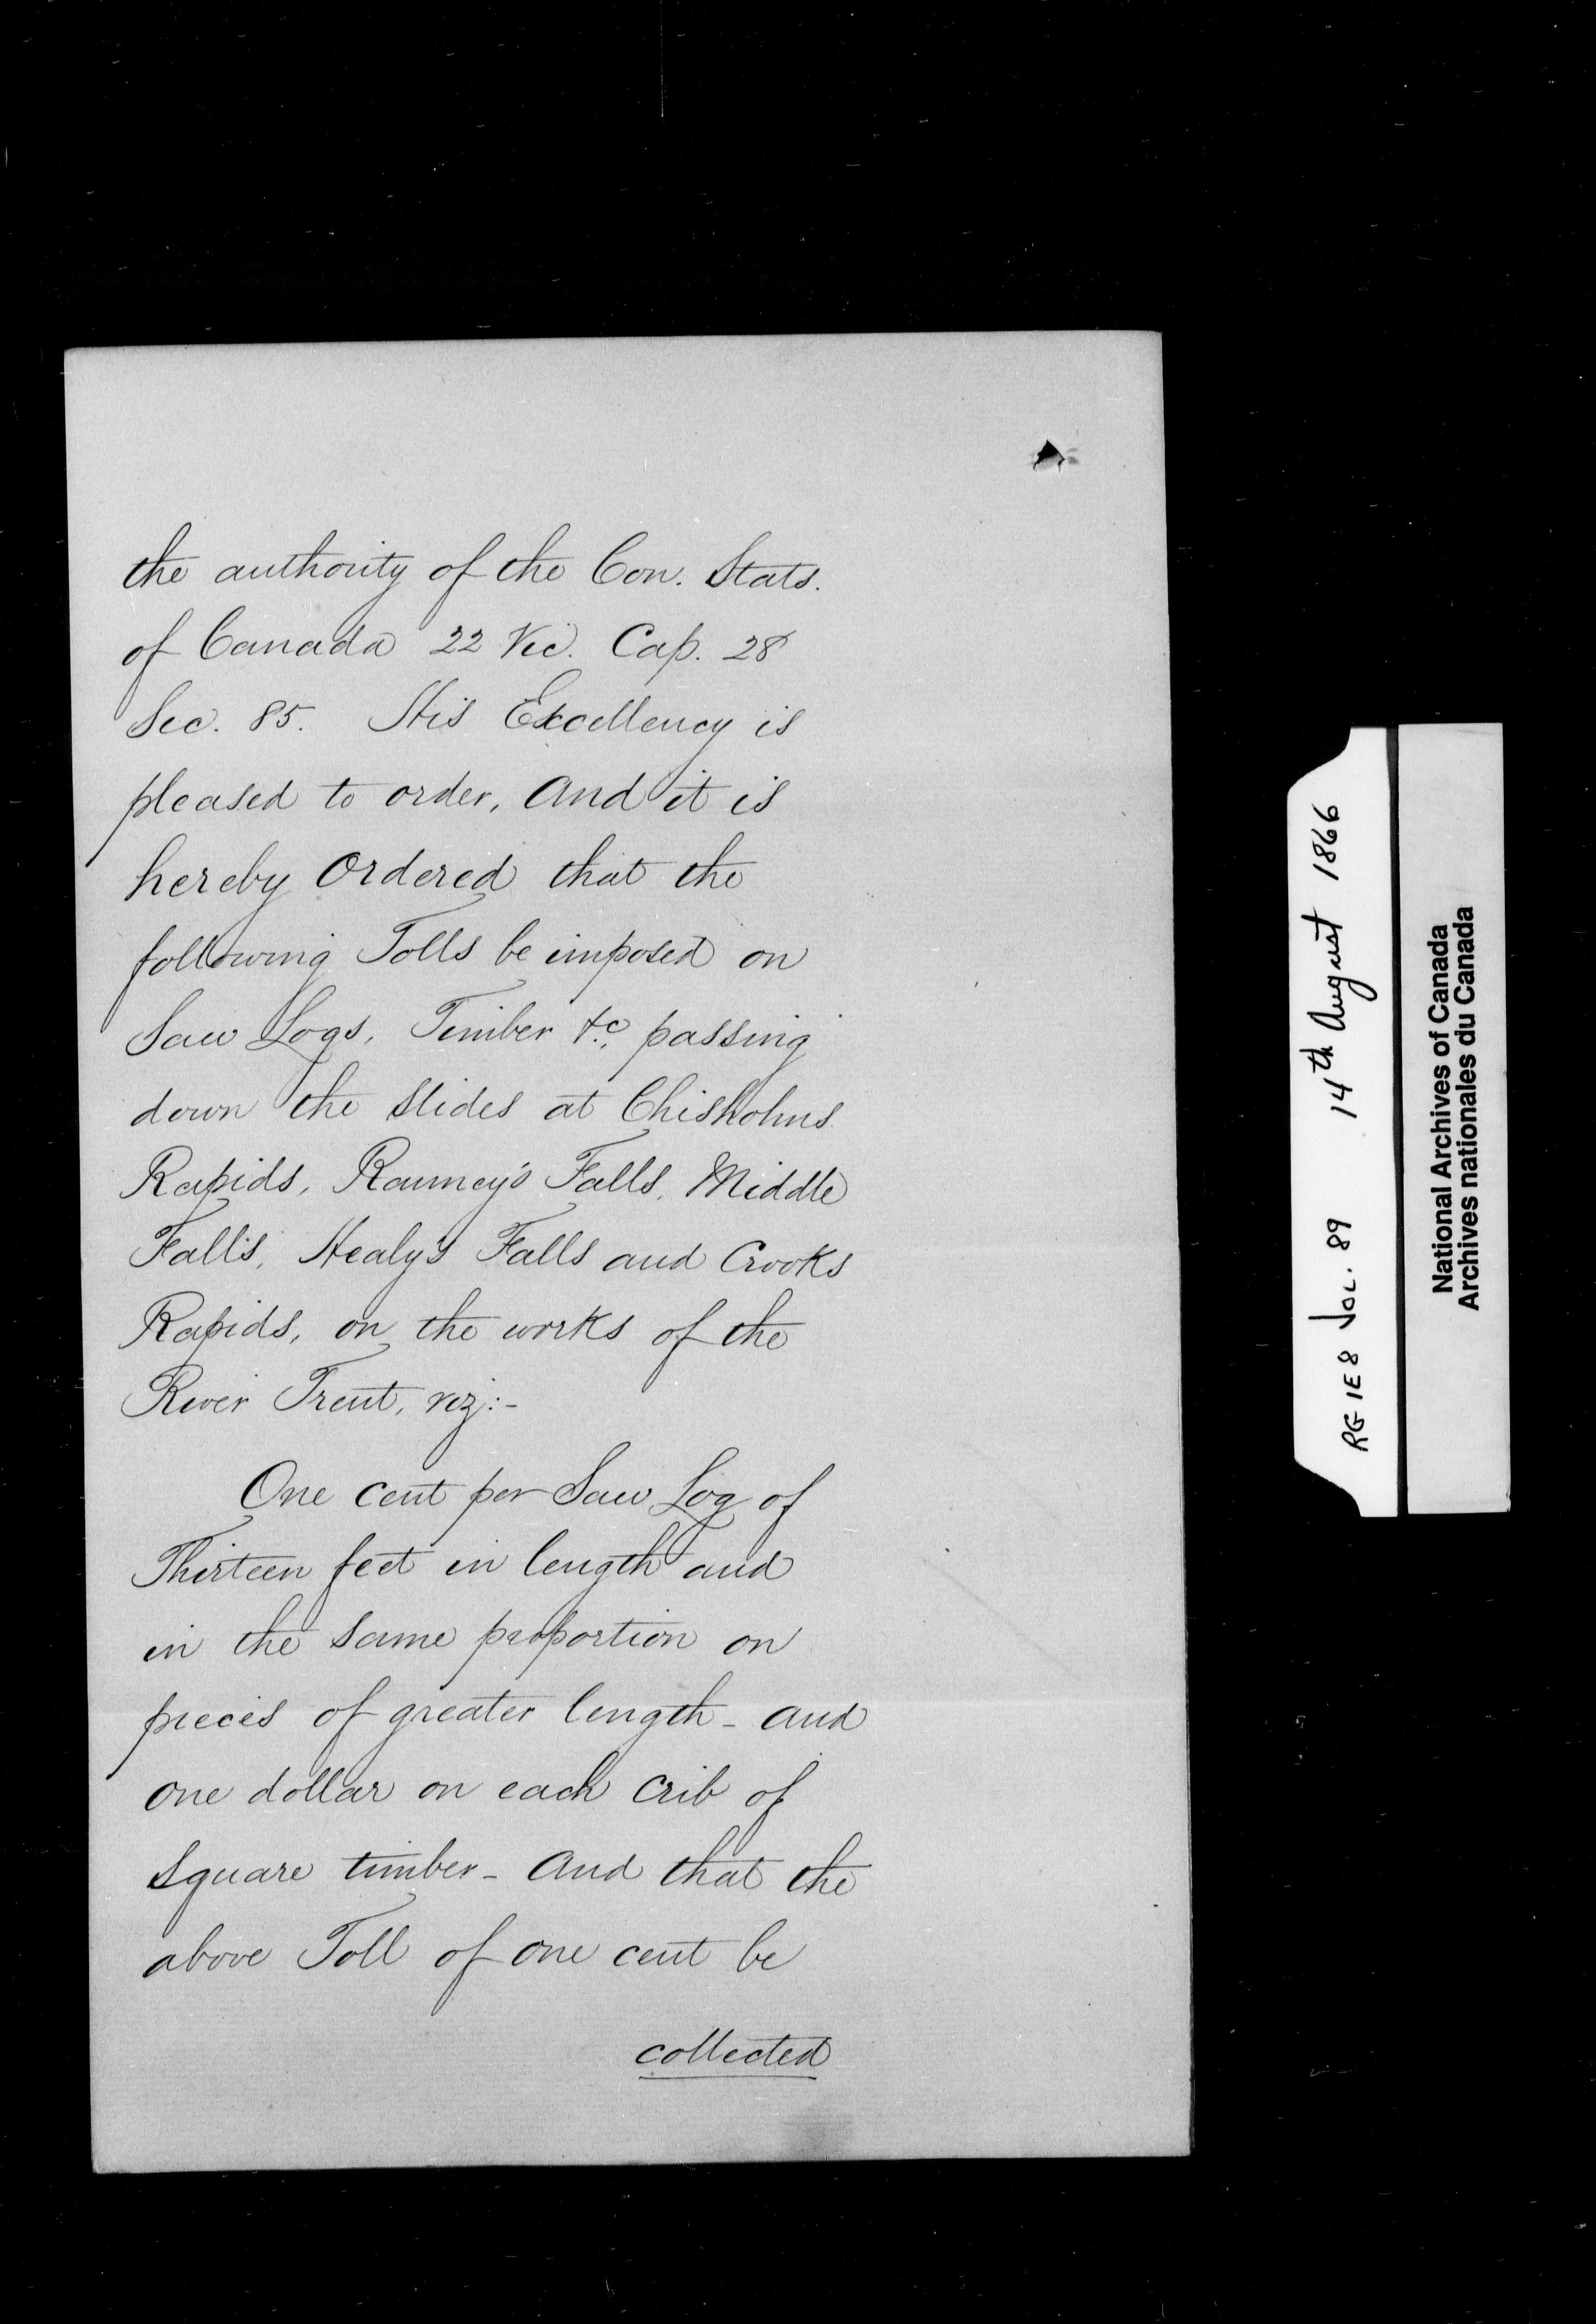 the authority of the Con. Stats.
of Canada 22 Vic. Cap. 28
Sec. 85. His Excellency is
pleased to order, and it is
hereby Ordered that the
following Tolls be imposed on
Saw Logs, Timber &c. passing
down the slides at Chisholms
Rapids, Ranney's Falls, Middle
Falls, Healy's Falls and Crooks
Rapids, on the works of the
River Trent, viz:-
One cent per Saw Log of
Thirteen feet in length and
in the same proportion on
pieces of greater length - and
one dollar on each crib of
square timber - And that the
above Toll of one cent be
collected
RG 1E8 VOL. 89 14th August 1866
National Archives of Canada
Archives nationales du Canada